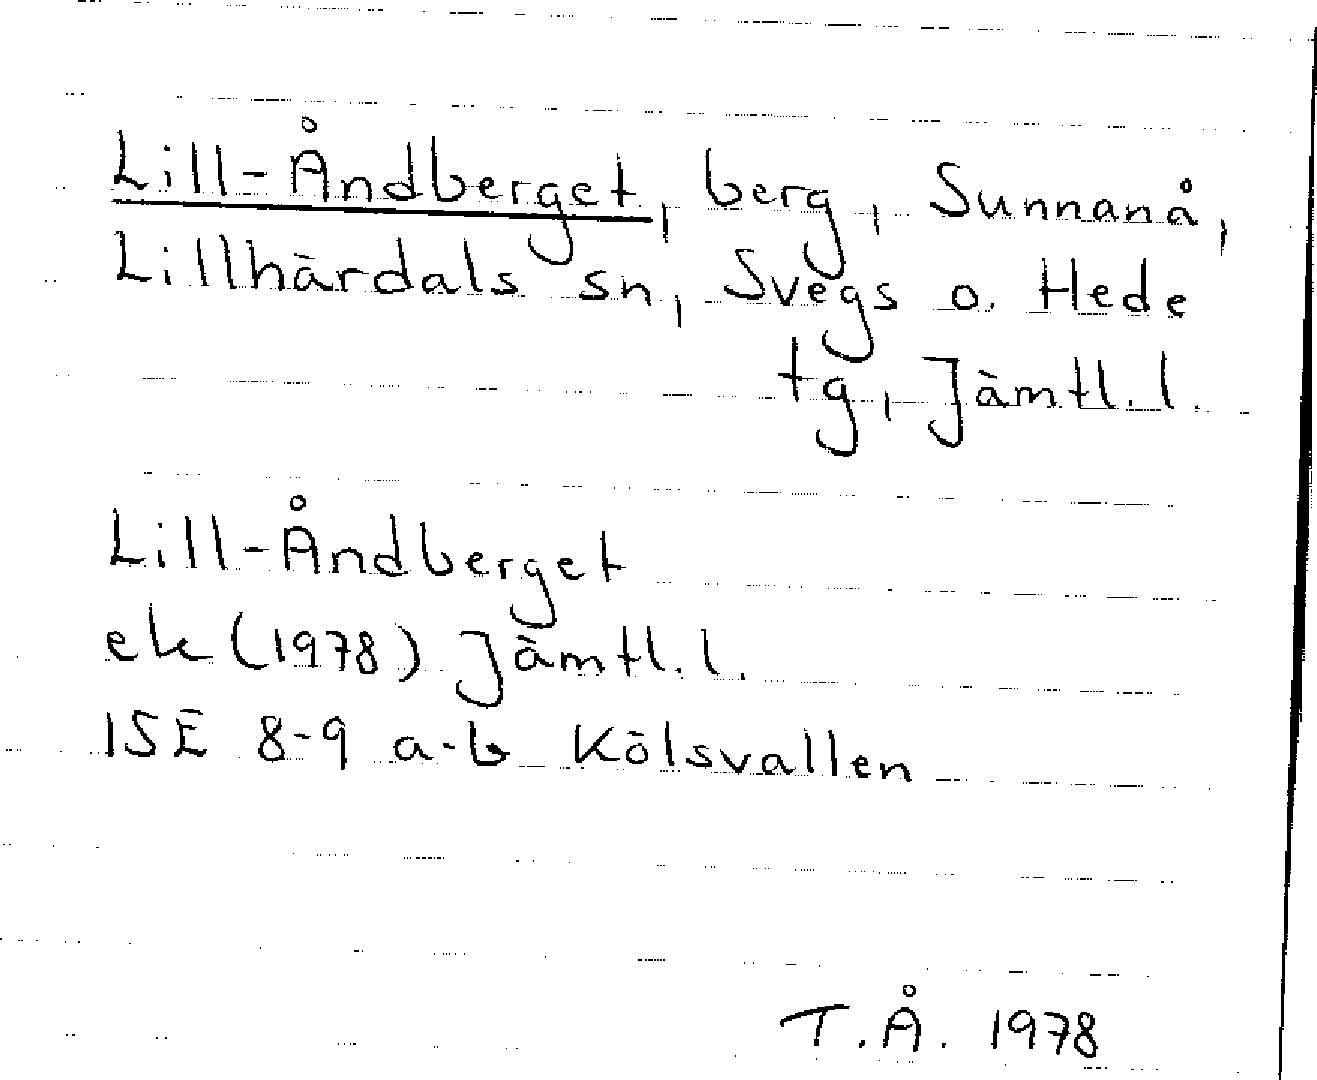 Lill-Åndberget, berg, Sunnanå,
Lillhärdals sn, Svegs o. Hede
tg, Jämtl. l.
Lill-Åndberget
ek (1978) Jämtl. l.
15E 8-9 a-b Kölsvallen
T.Å. 1978